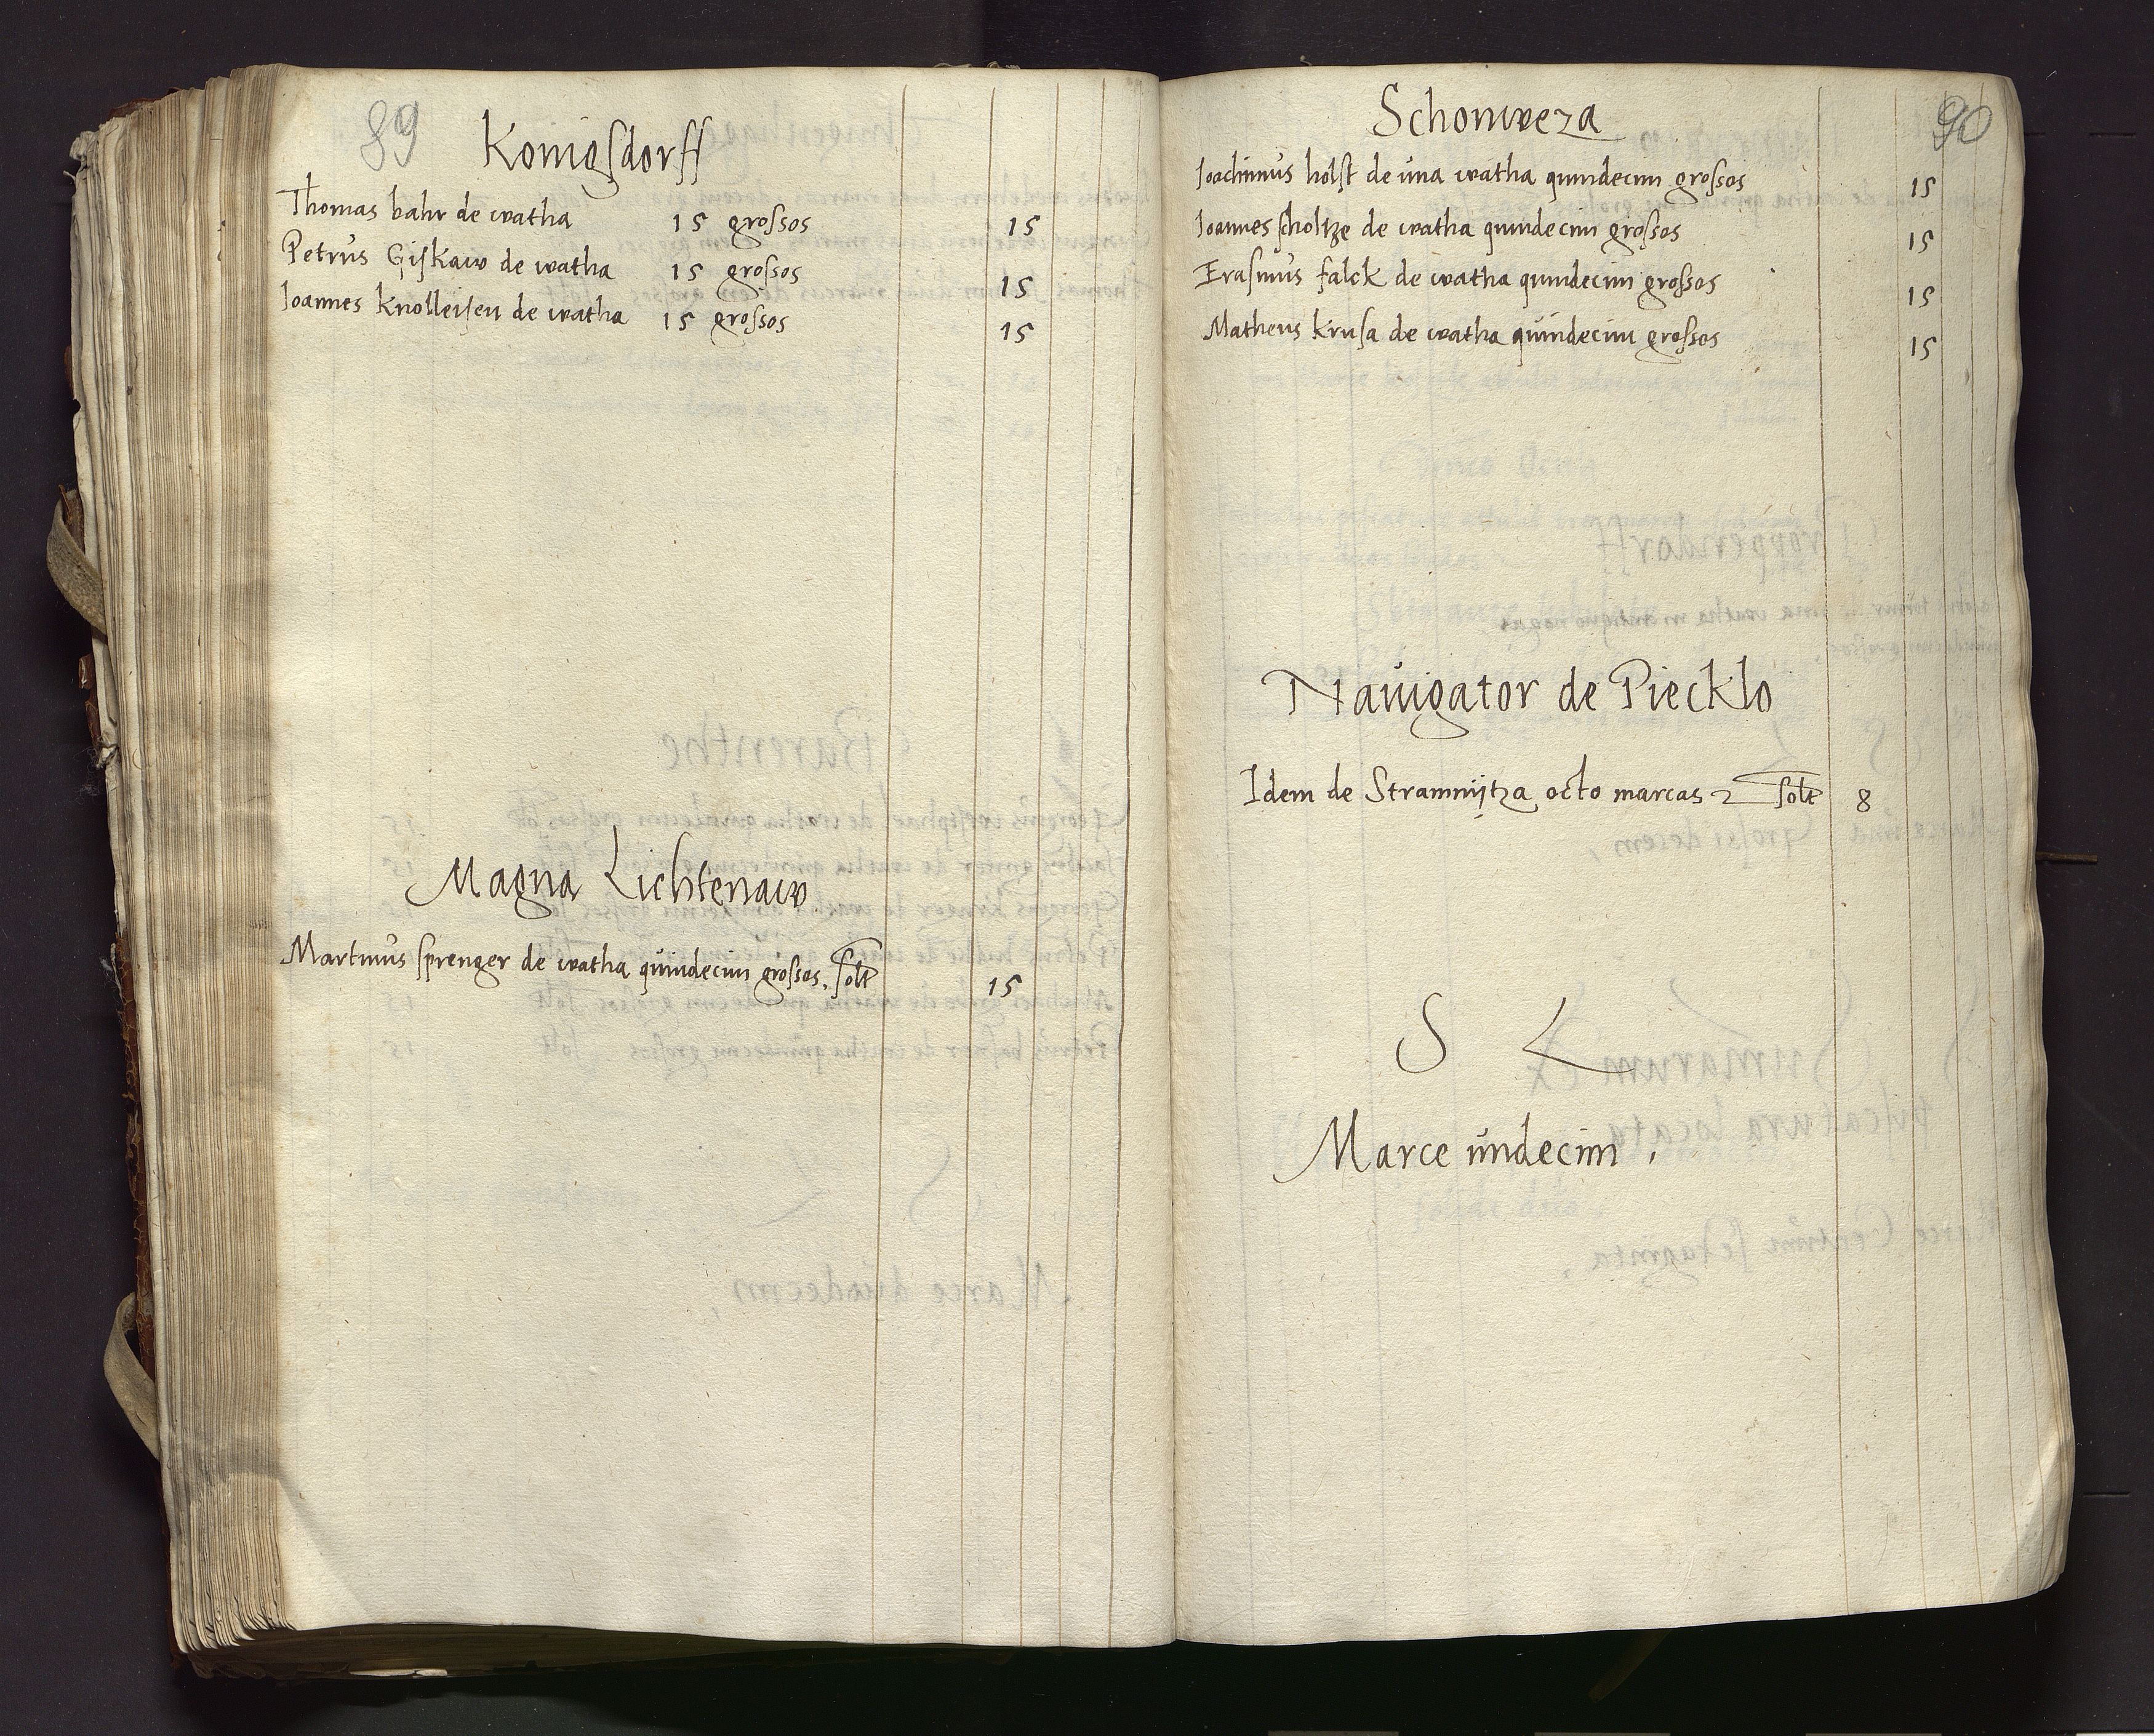 89
Konigsdorff
Thomas bahr de watha 15 grossos 15
Petrus Giskaw de watha 15 grossos 15
Ioannes Knolleisen de watha 15 grossos 15
Magna Lichtenaw
Martinus sprenger de watha quindecim grossos. solt 15
90
Schonweza
Ioachimus holst de una watha quindecim grossos 15
Ioannes scholtze de watha quindecim grossos 15
Erasmus falck de watha quindecim grossos 15
Matheus krusa de watha quindecim grossos 15
Navigator de Piecklo
Idem de Stramnijtza octo marcas solt 8
S L
Marce undecim,